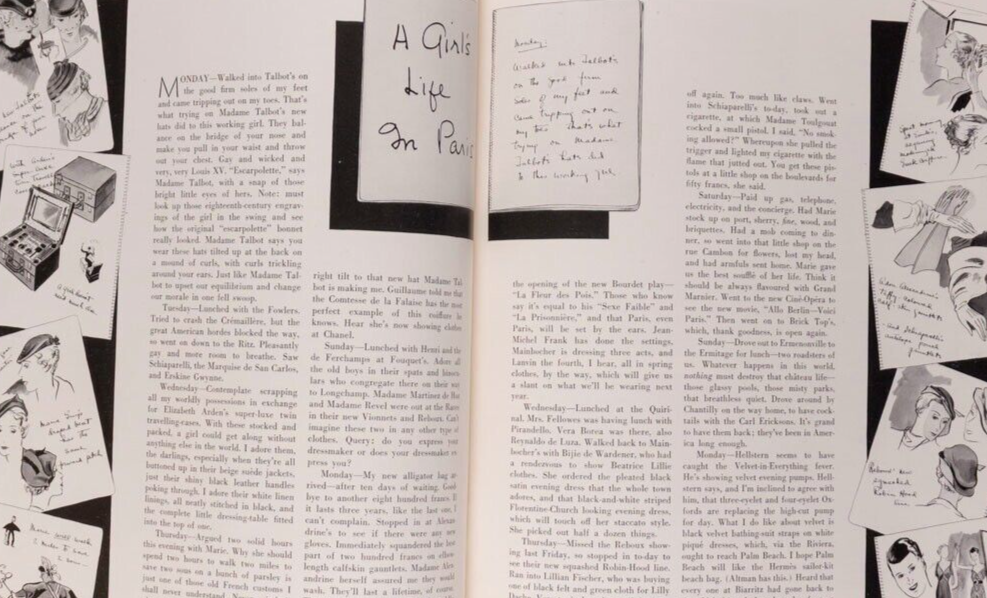 A Girl's
Life
In Paris
Monday
Walked into Talbot's
on the good firm
soles of my feet and
came tripping out on
my toes that's what
trying on Madame
Talbot's hats did
to this working girl
MONDAY—Walked into Talbot's on
the good firm soles of my feet
and came tripping out on my toes. That's
what trying on Madame Talbot's new
hats did to this working girl. They bal-
ance on the bridge of your nose and
make you pull in your waist and throw
out your chest. Gay and wicked and
very, very Louis XV. "Escarpolette," says
Madame Talbot, with a snap of those
bright little eyes of hers. Note: must
look up those eighteenth-century engrav-
ings of the girl in the swing and see
how the original "escarpolette" bonnet
really looked. Madame Talbot says you
wear these hats tilted up at the back on
a mound of curls, with curls trickling
around your ears. Just like Madame Tal-
bot to upset our equilibrium and change
our morale in one fell swoop.
Tuesday—Lunched with the Fowlers.
Tried to crash the Crémaillère, but the
great American hordes blocked the way,
so went on down to the Ritz. Pleasantly
gay and more room to breathe. Saw
Schiaparelli, the Marquise de San Carlos,
and Erskine Gwynne.
Wednesday—Contemplate scrapping
all my worldly possessions in exchange
for Elizabeth Arden's super-luxe twin
travelling-cases. With these stocked and
packed, a girl could get along without
anything else in the world. I adore them,
the darlings, especially when they're all
buttoned up in their beige suède jackets,
just their shiny black leather handles
poking through. I adore their white linen
linings, all neatly stitched in black, and
the complete little dressing-table fitted
into the top of one.
Thursday—Argued two solid hours
this evening with Marie. Why she should
spend two hours to walk two miles to
save two sous on a bunch of parsley is
just one of those old French customs I
shall never understand.
right tilt to that new hat Madame Tal-
bot is making me. Guillaume told me that
the Comtesse de la Falaise has the most
perfect example of this coiffure he
knows. Hear she's now showing clothes
at Chanel.
Sunday—Lunched with Henri and the
de Ferchamps at Fouquet's. Adore all
the old boys in their spats and binocu-
lars who congregate there on their way
to Longchamp. Madame Martinez de Hoz
and Madame Revel were out at the Races
in their new Vionnets and Reboux. Can't
imagine these two in any other type of
clothes. Query: do you express your
dressmaker or does your dressmaker ex-
press you?
Monday—My new alligator bag ar-
rived—after ten days of waiting. Good-
bye to another eight hundred francs. If
it lasts three years, like the last one, I
can't complain. Stopped in at Alexan-
drine's to see if there were any new
gloves. Immediately squandered the best
part of two hundred francs on elbow-
length calfskin gauntlets. Madame Alex-
andrine herself assured me they would
wash. They'll last a lifetime, of course.
the opening of the new Bourdet play—
"La Fleur des Pois." Those who know
say it's equal to his "Sexe Faible" and
"La Prisonnière," and that Paris, even
Paris, will be set by the ears. Jean-
Michel Frank has done the settings.
Mainbocher is dressing three acts, and
Lanvin the fourth, I hear, all in spring
clothes, by the way, which will give us
a slant on what we'll be wearing next
year.
Wednesday—Lunched at the Quiri-
nal. Mrs. Fellowes was having lunch with
Pirandello. Vera Borea was there, also
Reynaldo de Luza. Walked back to Main-
bocher's with Bijie de Wardener, who had
a rendezvous to show Beatrice Lillie
clothes. She ordered the pleated black
satin evening dress that the whole town
adores, and that black-and-white striped
Florentine-Church looking evening dress,
which will touch off her staccato style.
She picked out half a dozen things.
Thursday—Missed the Reboux show-
ing last Friday, so stopped in to-day to
see their new squashed Robin-Hood line.
Ran into Lillian Fischer, who was buying
one of black felt and green cloth for Lilly
off again. Too much like claws. Went
into Schiaparelli's to-day, took out a
cigarette, at which Madame Toulgouat
cocked a small pistol. I said, "No smok-
ing allowed?" Whereupon she pulled the
trigger and lighted my cigarette with the
flame that jutted out. You get these pis-
tols at a little shop on the boulevards for
fifty francs, she said.
Saturday—Paid up gas, telephone,
electricity, and the concierge. Had Marie
stock up on port, sherry, fine, wood, and
briquettes. Had a mob coming to din-
ner, so went into that little shop on the
rue Cambon for flowers, lost my head,
and had armfuls sent home. Marie gave
us the best soufflé of her life. Think it
should be always flavoured with Grand
Marnier. Went to the new Ciné-Opéra to
see the new movie, "Allo Berlin—Voici
Paris." Then went on to Brick Top's,
which, thank goodness, is open again.
Sunday—Drove out to Ermenonville to
the Ermitage for lunch—two roadsters of
us. Whatever happens in this world,
nothing must destroy that château life—
those glassy pools, those misty parks,
that breathless quiet. Drove around by
Chantilly on the way home, to have cock-
tails with the Carl Ericksons. It's grand
to have them back; they've been in Amer-
ica long enough.
Monday—Hellstern seems to have
caught the Velvet-in-Everything fever.
He's showing velvet evening pumps. Hell-
stern says, and I'm inclined to agree with
him, that three-eyelet and four-eyelet Ox-
fords are replacing the high-cut pump
for day. What I do like about velvet is
black velvet bathing-suit straps on white
piqué dresses, which, via the Riviera,
ought to reach Palm Beach. I hope Palm
Beach will like the Hermès sailor-kit
beach bag. (Altman has this.) Heard that
every one at Biarritz had gone back to